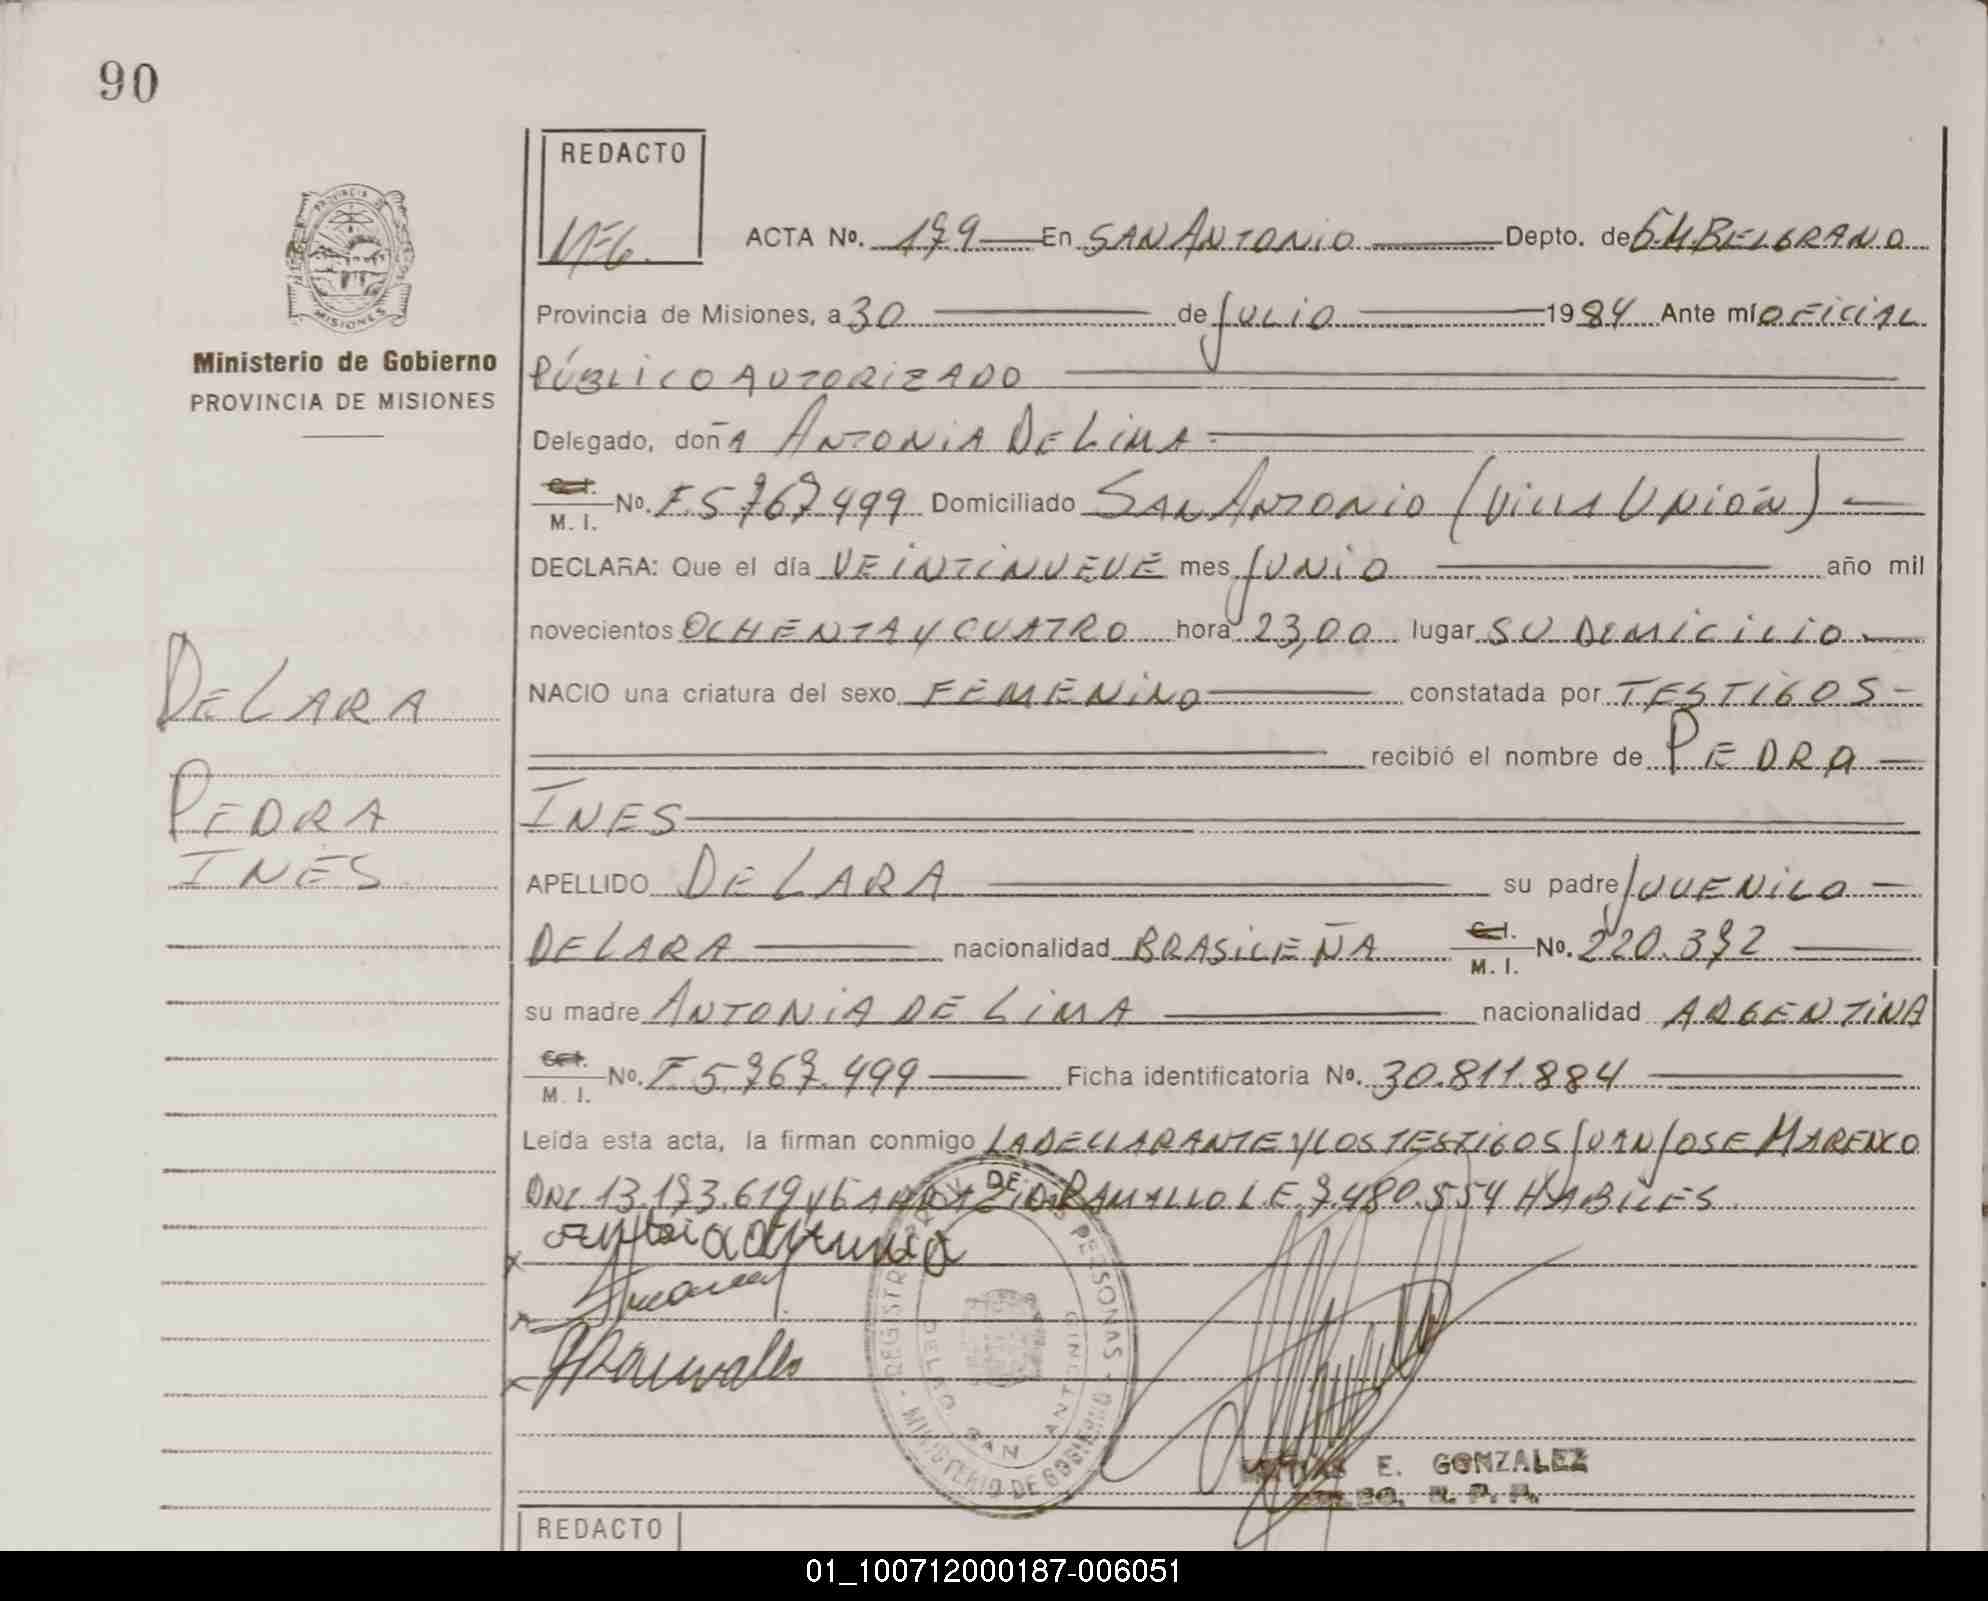 90
REDACTO
MEG.
PROVINCIA DE
MISIONES
Ministerio de Gobierno
PROVINCIA DE MISIONES
ACTA No. 179 En SAN ANTONIO Depto. de G.M. BELGRANO
Provincia de Misiones, a 30 de JULIO 1984 Ante mí OFICIAL
PÚBLICO AUTORIZADO
Delegado, doña ANTONIA DE LIMA
C.I. M.I. No. F.5767499 Domiciliado SAN ANTONIO (VILLA UNIÓN)
DECLARA: Que el día VEINTINUEVE mes JUNIO año mil
novecientos OCHENTA Y CUATRO hora 23,00 lugar SU DOMICILIO
NACIO una criatura del sexo FEMENINO constatada por TESTIGOS
recibió el nombre de PEDRA
INES
APELLIDO DE LARA su padre JUVENILO
DE LARA nacionalidad BRASILEÑA C.I. M.I. No. 220.372
su madre ANTONIA DE LIMA nacionalidad ARGENTINA
C.I. M.I. No. F.5.767.499 Ficha identificatoria No. 30.811.884
Leída esta acta, la firman conmigo LA DECLARANTE Y LOS TESTIGOS JUAN JOSE MARENCO
DNI. 13.173.619 Y RAMALLO L.E. 7.480.554 HABILES
DE LARA
PEDRA
INÉS
REGISTRO DE LAS PERSONAS
DELEG. SAN ANTONIO
MINISTERIO DE GOBIERNO
E. GONZALEZ
R. P. P.
REDACTO
01_100712000187-006051